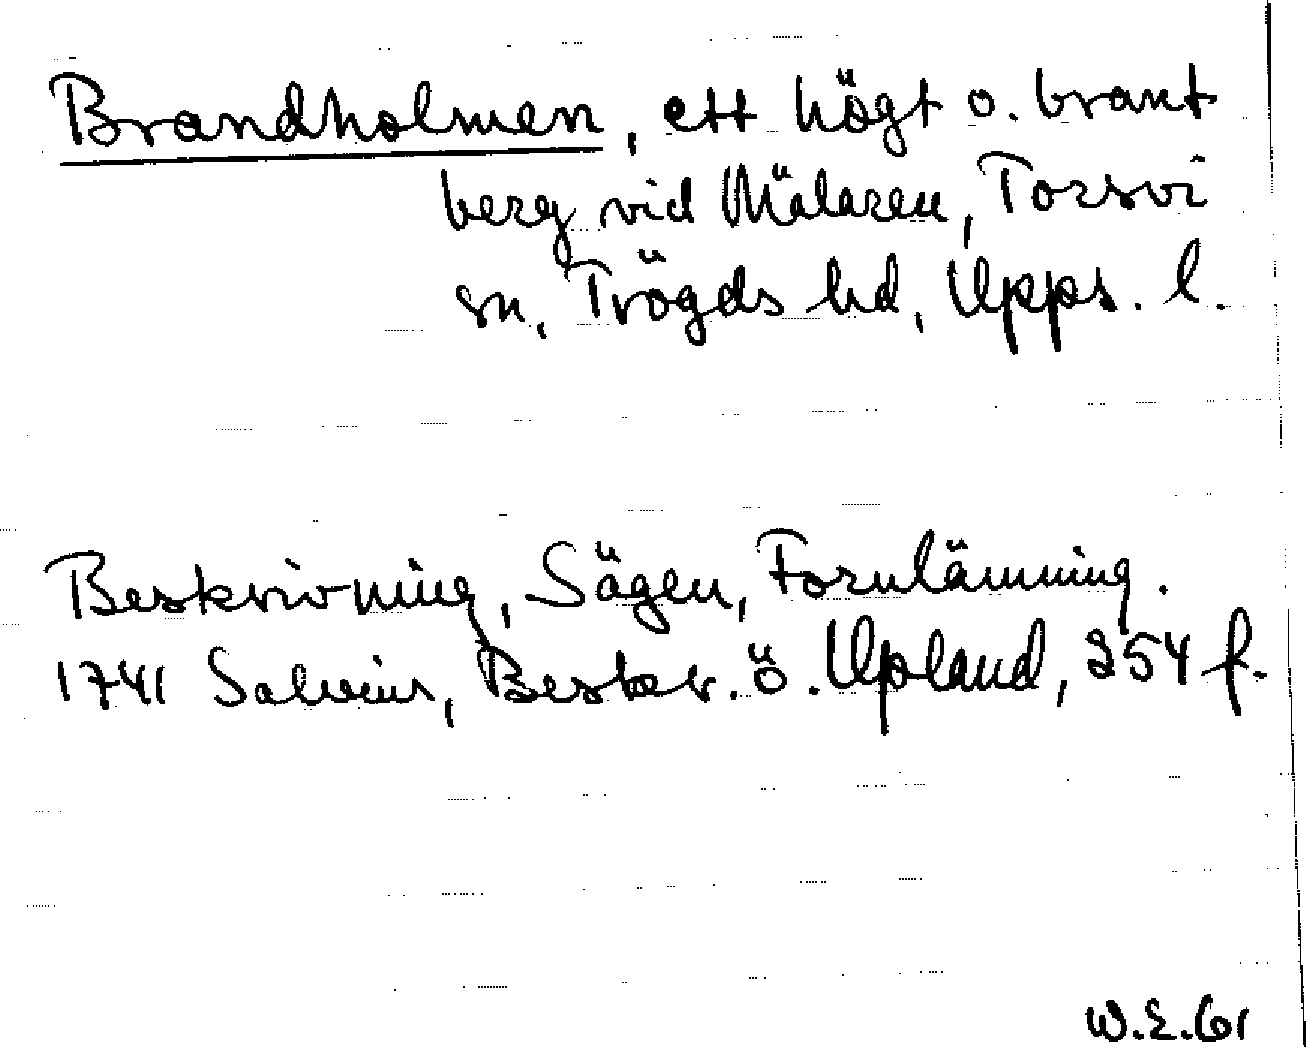 Brandholmen, ett högt o. brant
berg vid Mälaren, Torsvi
sn, Trögds hd, Upps. l.
Beskrivning, Sägen, Fornlämning.
1741 Salvius, Beskr. ö. Upland, 254 f.
W.E.61